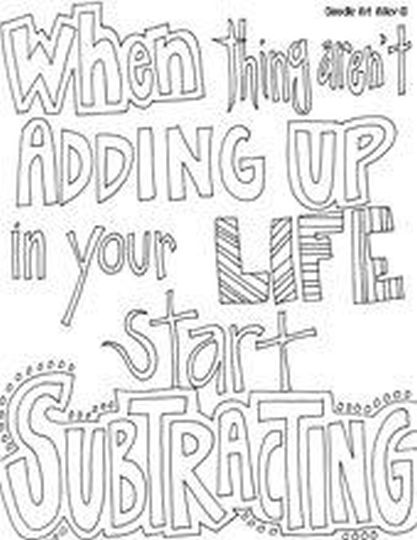 Doodle Art Alley ©
When thing aren't
ADDING UP
in your LIFE
start
SUBTRACTING